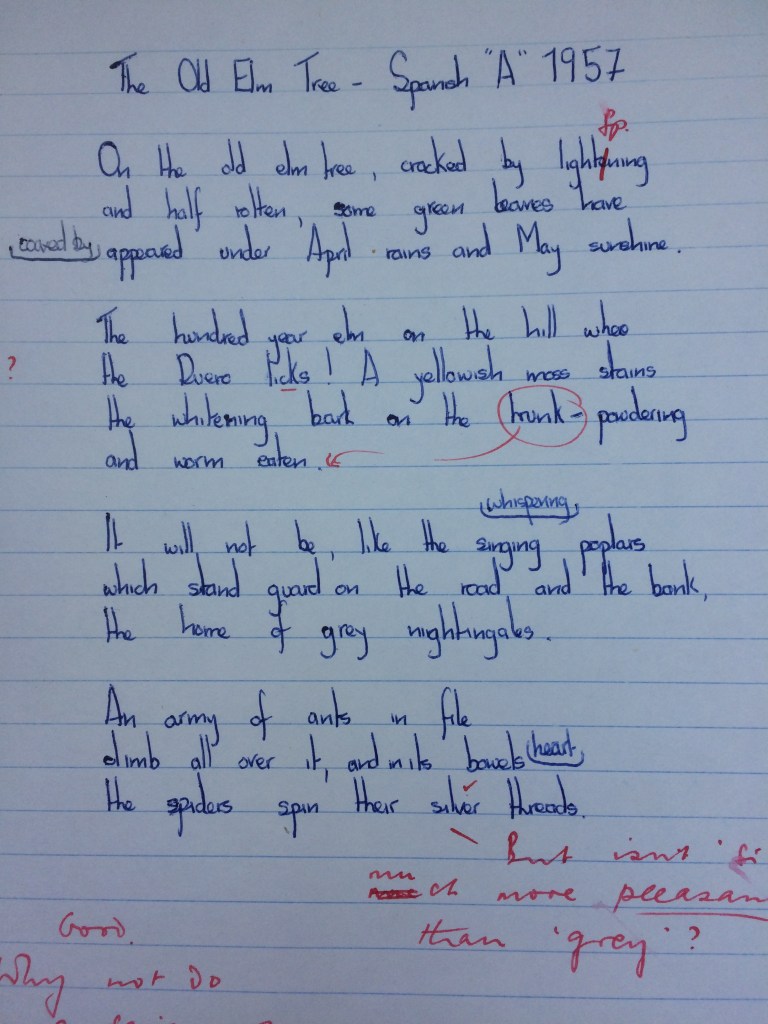 The Old Elm Tree - Spanish "A" 1957
Sp.
On the old elm tree, cracked by lightening
and half rotten, some green leaves have
caused by
appeared under April rains and May sunshine.
The hundred year elm on the hill who
?
the Duero licks! A yellowish moss stains
the whitening bark on the trunk - powdering
and worm eaten.
whispering
It will not be, like the singing poplars
which stand guard on the road and the bank,
the home of grey nightingales.
An army of ants in file
climb all over it, and in its bowels heart
the spiders spin their silver threads.
But isn't 'si
much more pleasan
than 'grey'?
Good.
Why not do